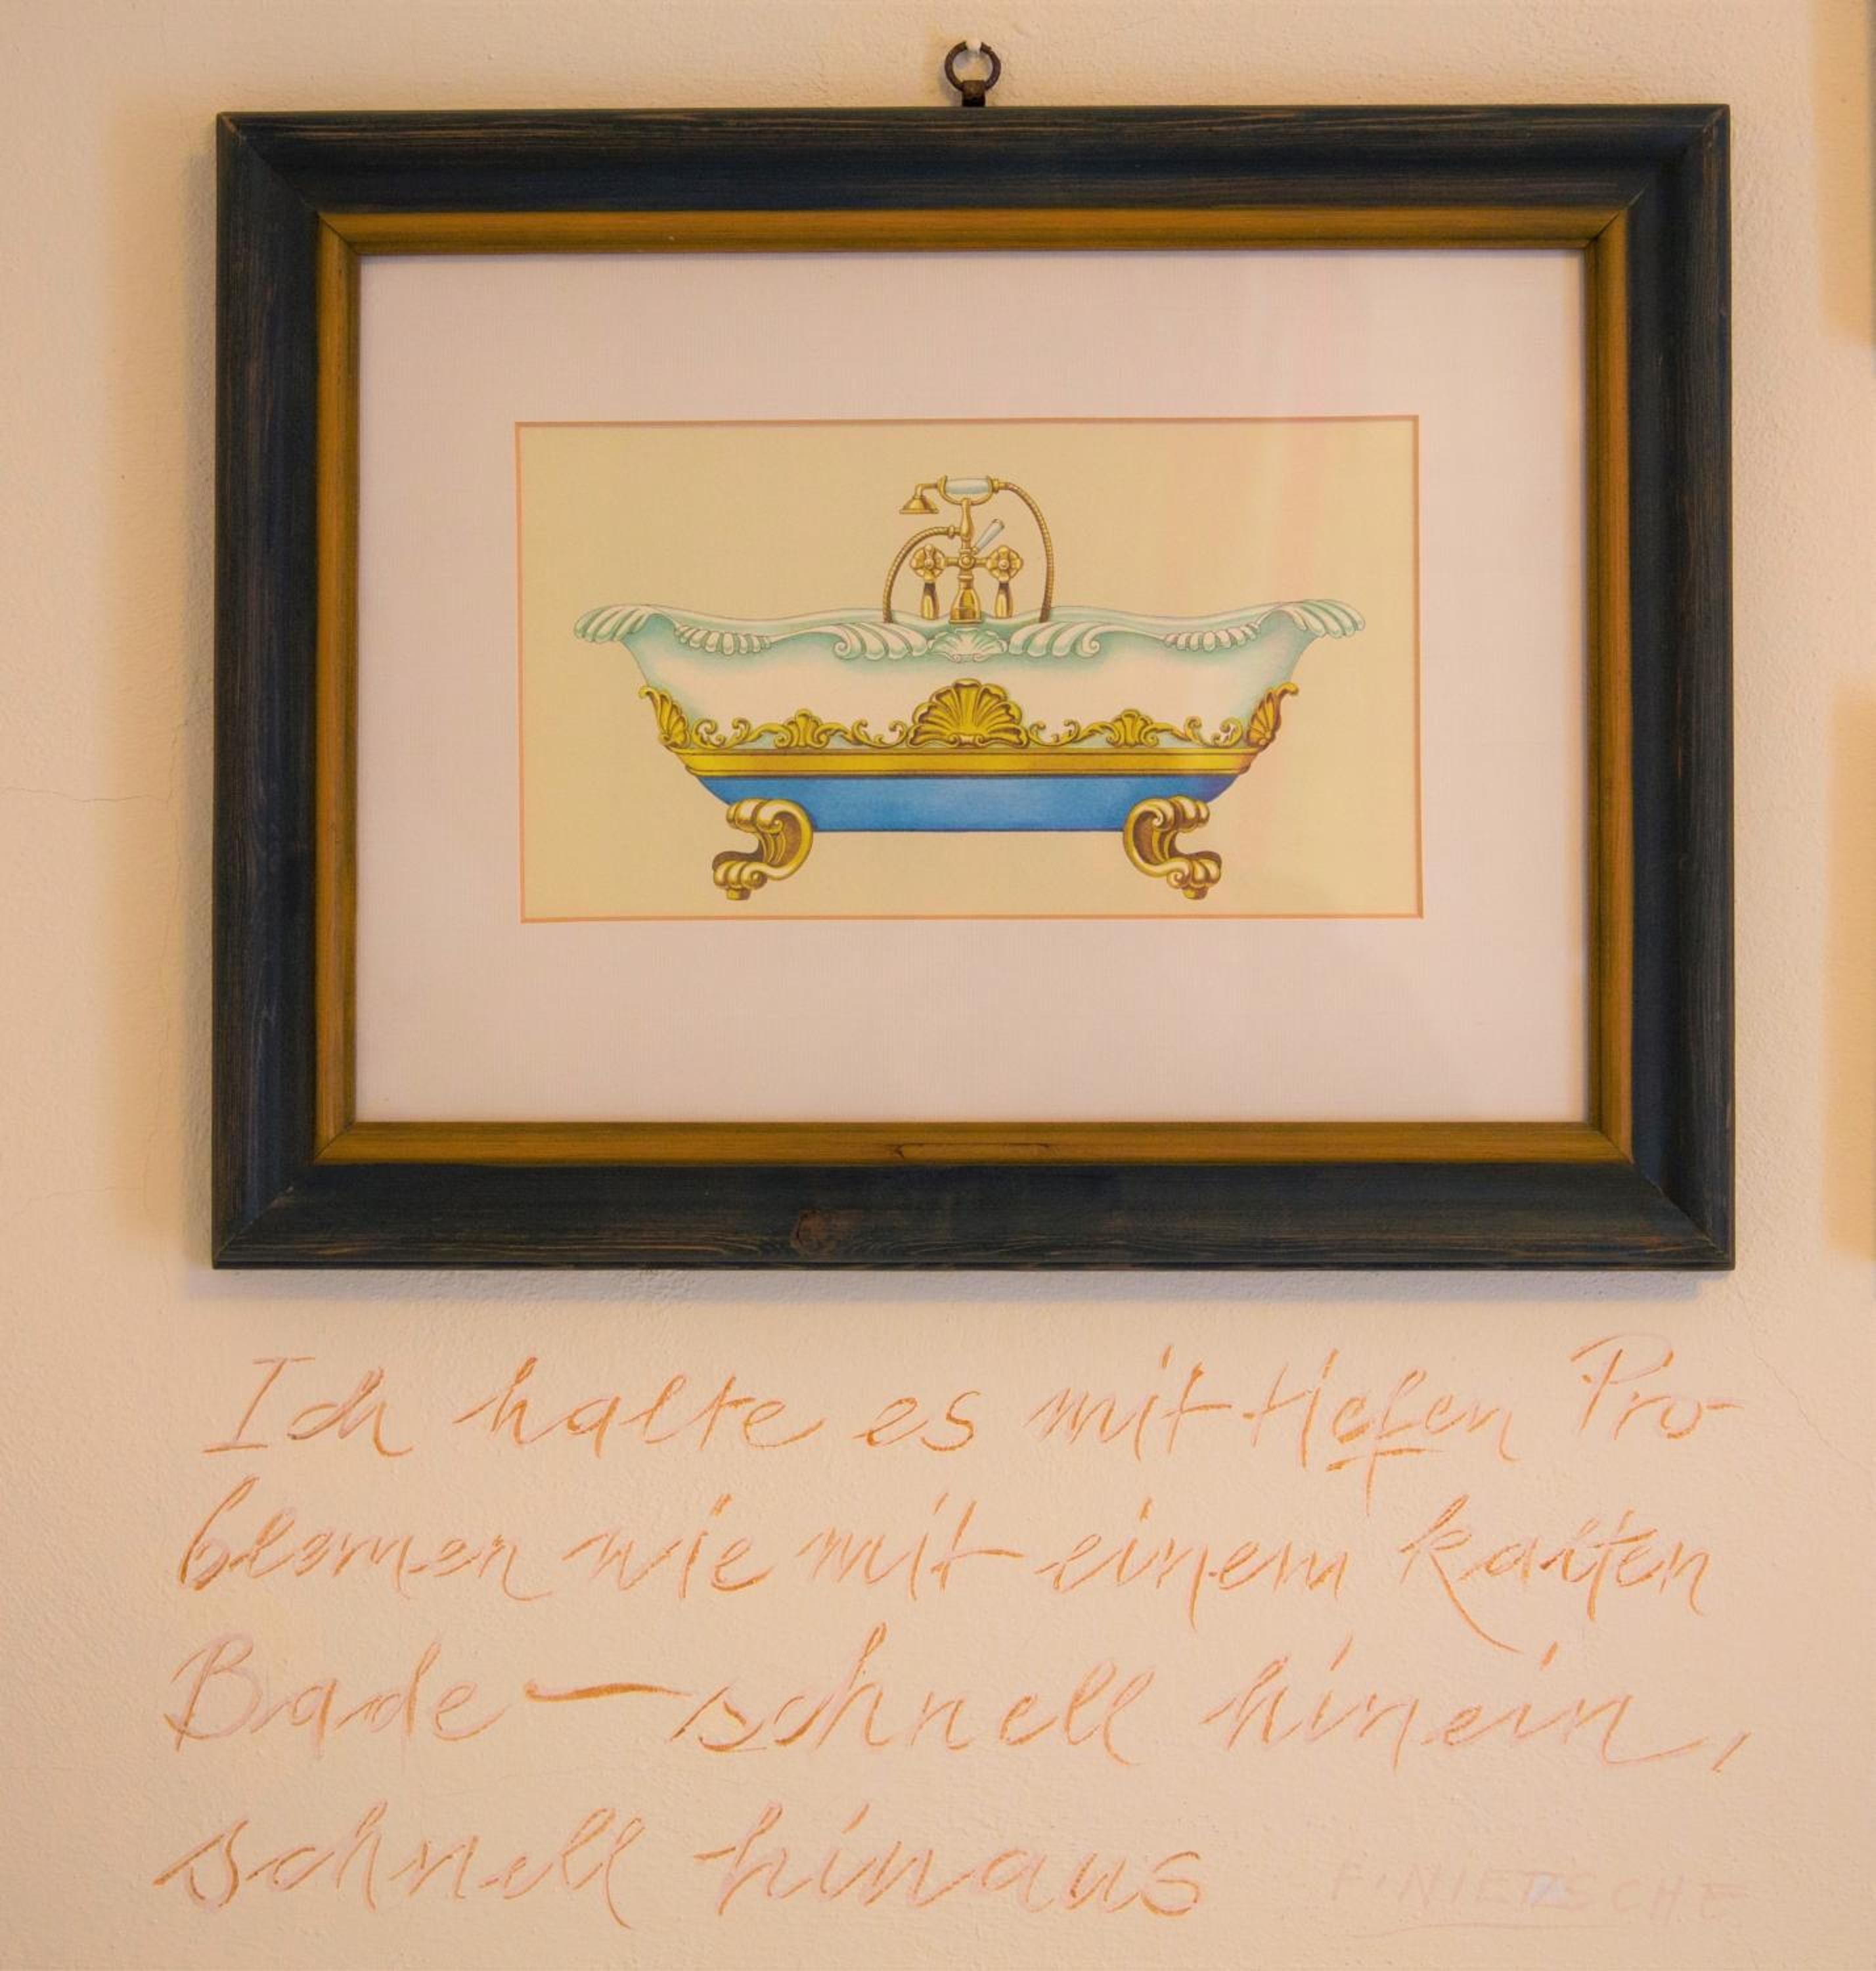 Ich halte es mit tiefen Pro-
blemen wie mit einem kalten
Bade — schnell hinein,
schnell hinaus
F. NIETZSCHE